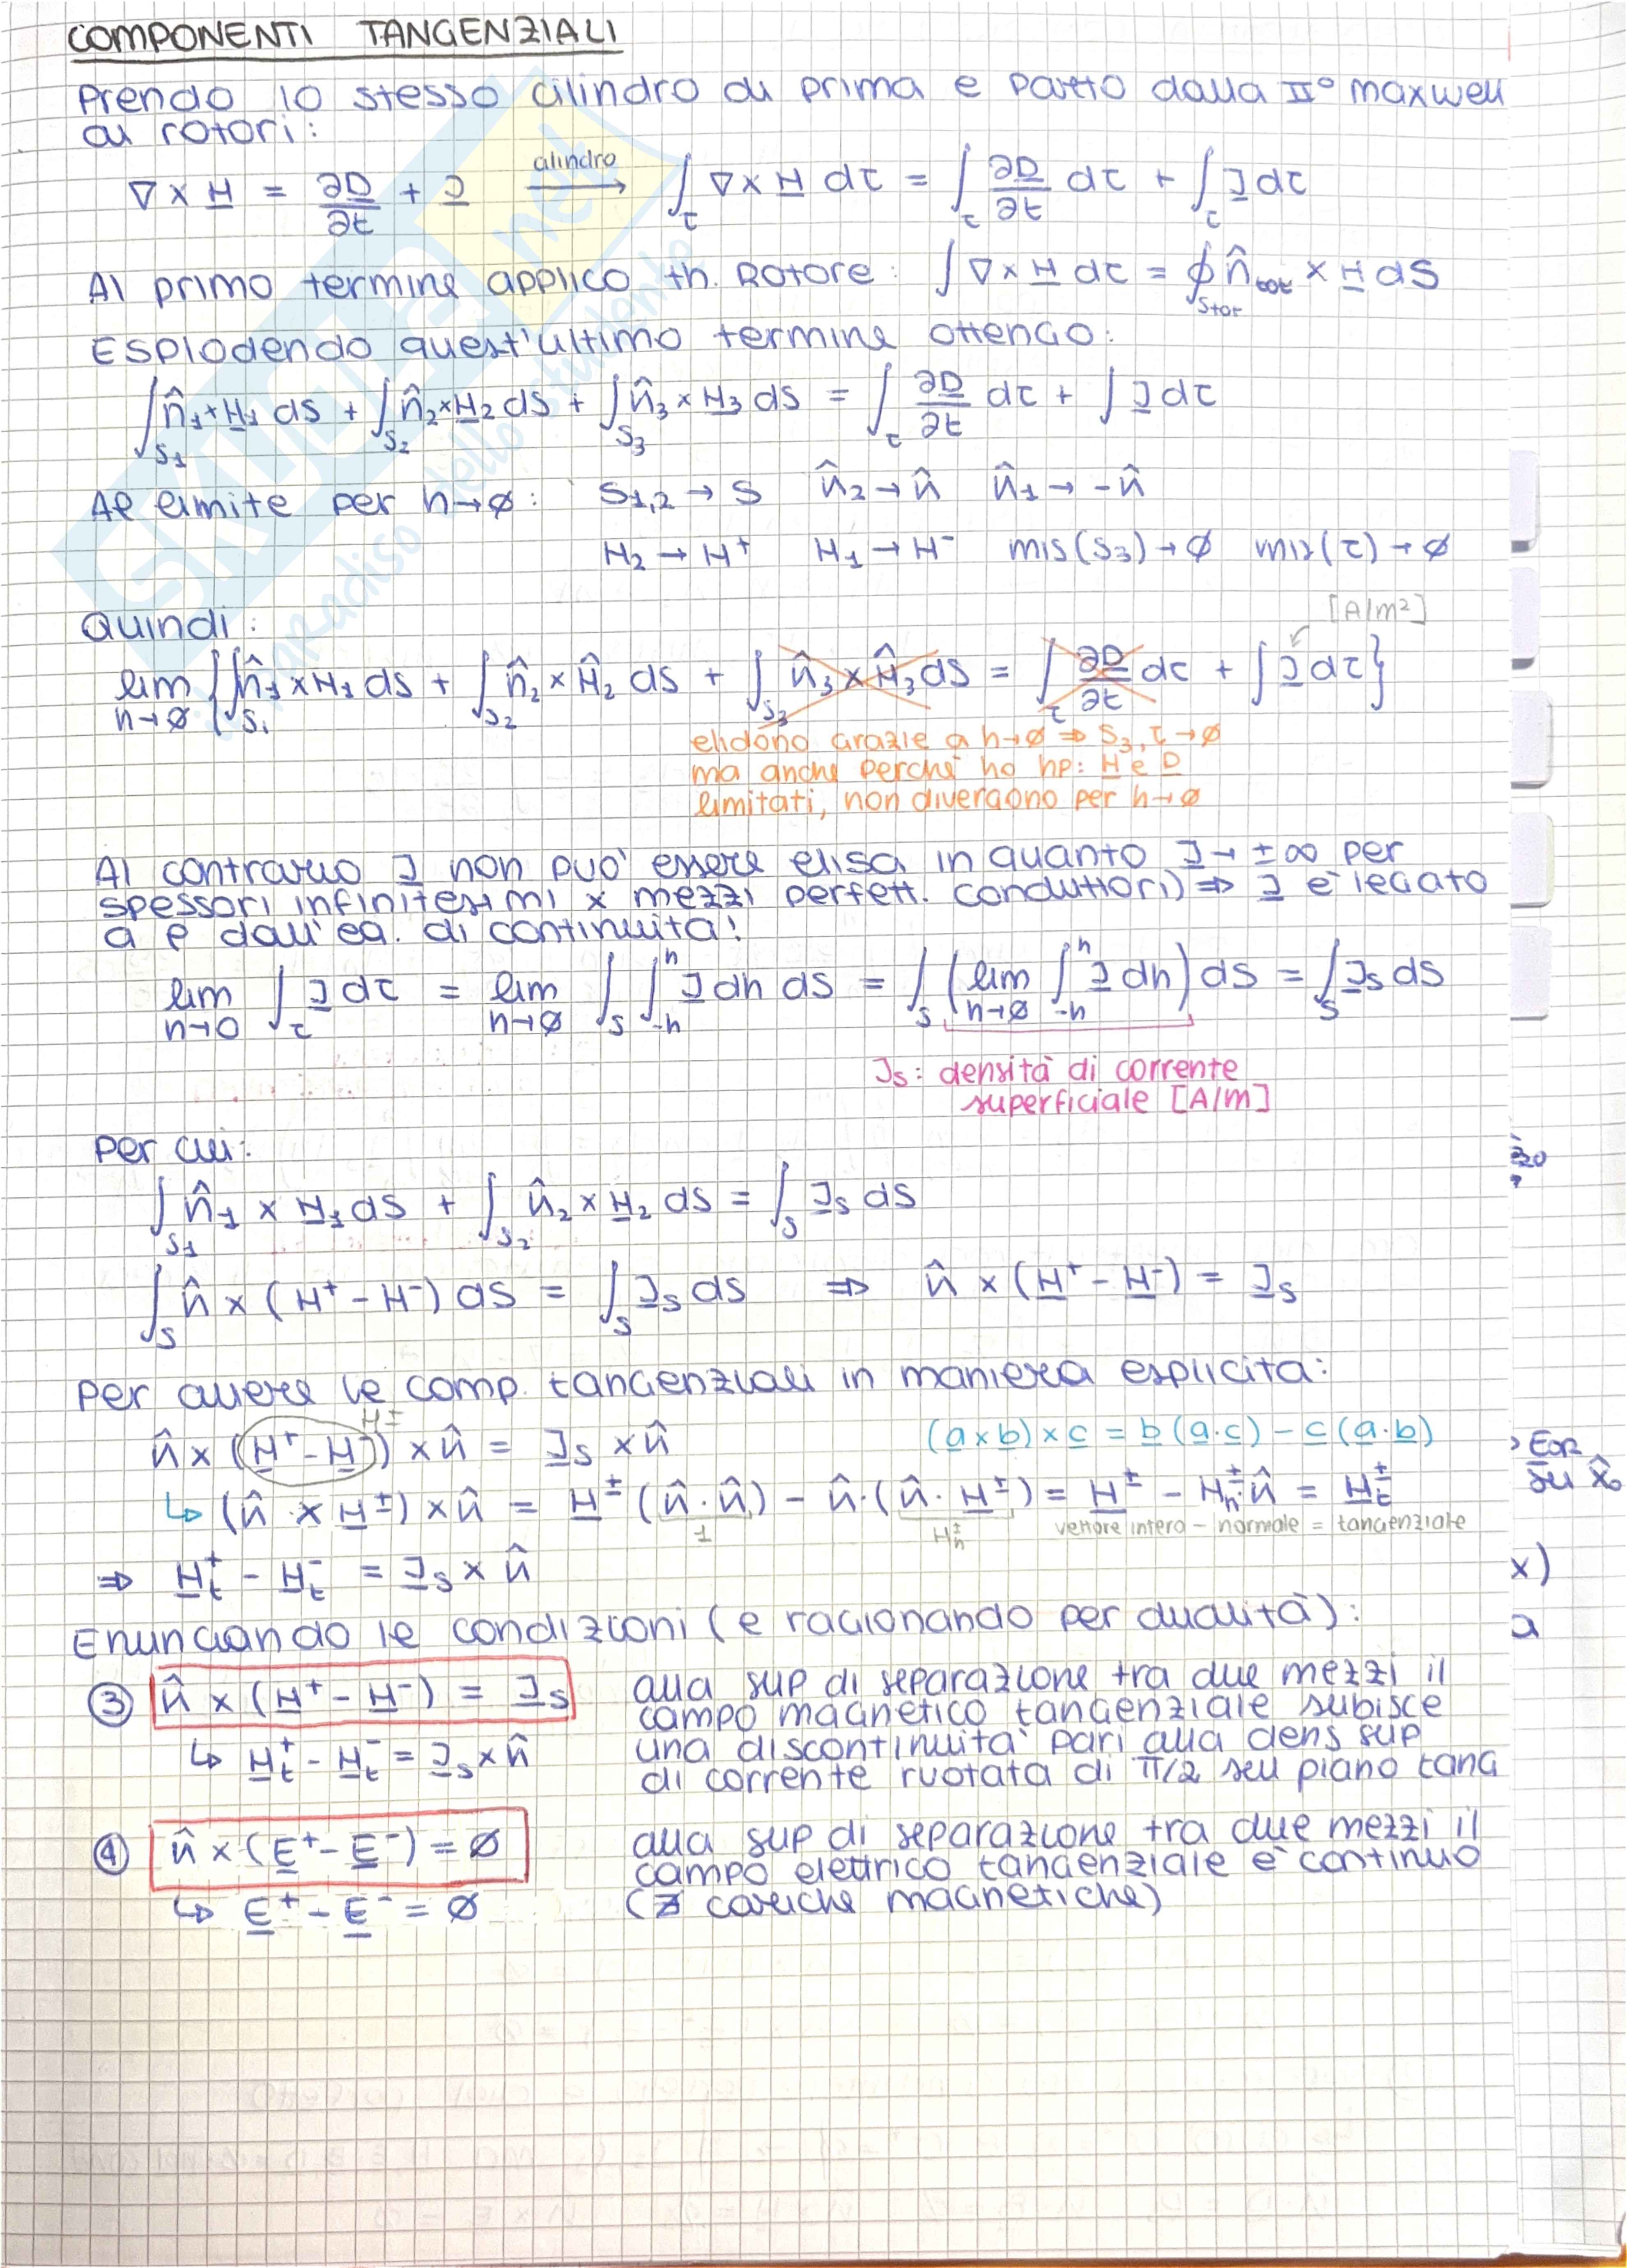 COMPONENTI TANGENZIALI
Prendo lo stesso cilindro di prima e parto dalla II° maxwell
ai rotori:
∇ × H = ∂D/∂t + J  cilindro →  ∫_τ ∇ × H dτ = ∫_τ ∂D/∂t dτ + ∫_τ J dτ
Al primo termine applico th. Rotore: ∫ ∇ × H dτ = ∮_Stot n̂_tot × H dS
Esplodendo quest'ultimo termine ottengo:
∫_S1 n̂1 × H1 ds + ∫_S2 n̂2 × H2 ds + ∫_S3 n̂3 × H3 ds = ∫_τ ∂D/∂t dτ + ∫ J dτ
Al limite per h→∅: S1,2 → S  n̂2 → n̂  n̂1 → -n̂
H2 → H⁺  H1 → H⁻  mis(S3) → ∅  mis(τ) → ∅
Quindi:
[A/m²]
lim h→∅ {∫_S1 n̂1 × H1 ds + ∫_S2 n̂2 × Ĥ2 ds + ∫_S3 n̂3 × Ĥ3 ds = ∫_τ ∂D/∂t dτ + ∫ J dτ}
elidono grazie a h→∅ ⇒ S3, τ→∅
ma anche perché ho hp: H e D
limitati, non divergono per h→∅
Al contrario J non può essere elisa in quanto J → ±∞ per
spessori infinitesimi x mezzi perfett. conduttori) ⇒ J è legato
a ρ dall'eq. di continuità!
lim h→0 ∫_τ J dτ = lim h→∅ ∫_S ∫_-h^h J dh ds = ∫_S (lim h→∅ ∫_-h^h J dh) ds = ∫_S Js ds
Js: densità di corrente
superficiale [A/m]
Per cui:
∫_S1 n̂1 × H1 ds + ∫_S2 n̂2 × H2 ds = ∫_S Js ds
∫_S n̂ × (H⁺ - H⁻) ds = ∫_S Js ds  ⇒  n̂ × (H⁺ - H⁻) = Js
Per avere le comp. tangenziali in maniera esplicita:
H±
n̂ × (H⁺ - H⁻) × n̂ = Js × n̂  (a × b) × c = b (a · c) - c (a · b)
↳ (n̂ × H±) × n̂ = H± (n̂ · n̂) - n̂ · (n̂ · H±) = H± - Hn± n̂ = Ht±
1  Hn±  vettore intero - normale = tangenziale
⇒ Ht⁺ - Ht⁻ = Js × n̂
Enunciando le condizioni (e ragionando per dualità):
③ n̂ × (H⁺ - H⁻) = Js  alla sup di separazione tra due mezzi il
campo magnetico tangenziale subisce
↳ Ht⁺ - Ht⁻ = Js × n̂  una discontinuità pari alla dens sup
di corrente ruotata di π/2 sul piano tang
④ n̂ × (E⁺ - E⁻) = ∅  alla sup di separazione tra due mezzi il
campo elettrico tangenziale è continuo
↳ E⁺ - E⁻ = ∅  (∄ cariche magnetiche)
SKUOLA.net
il paradiso dello studente
su x̂o
x)
a